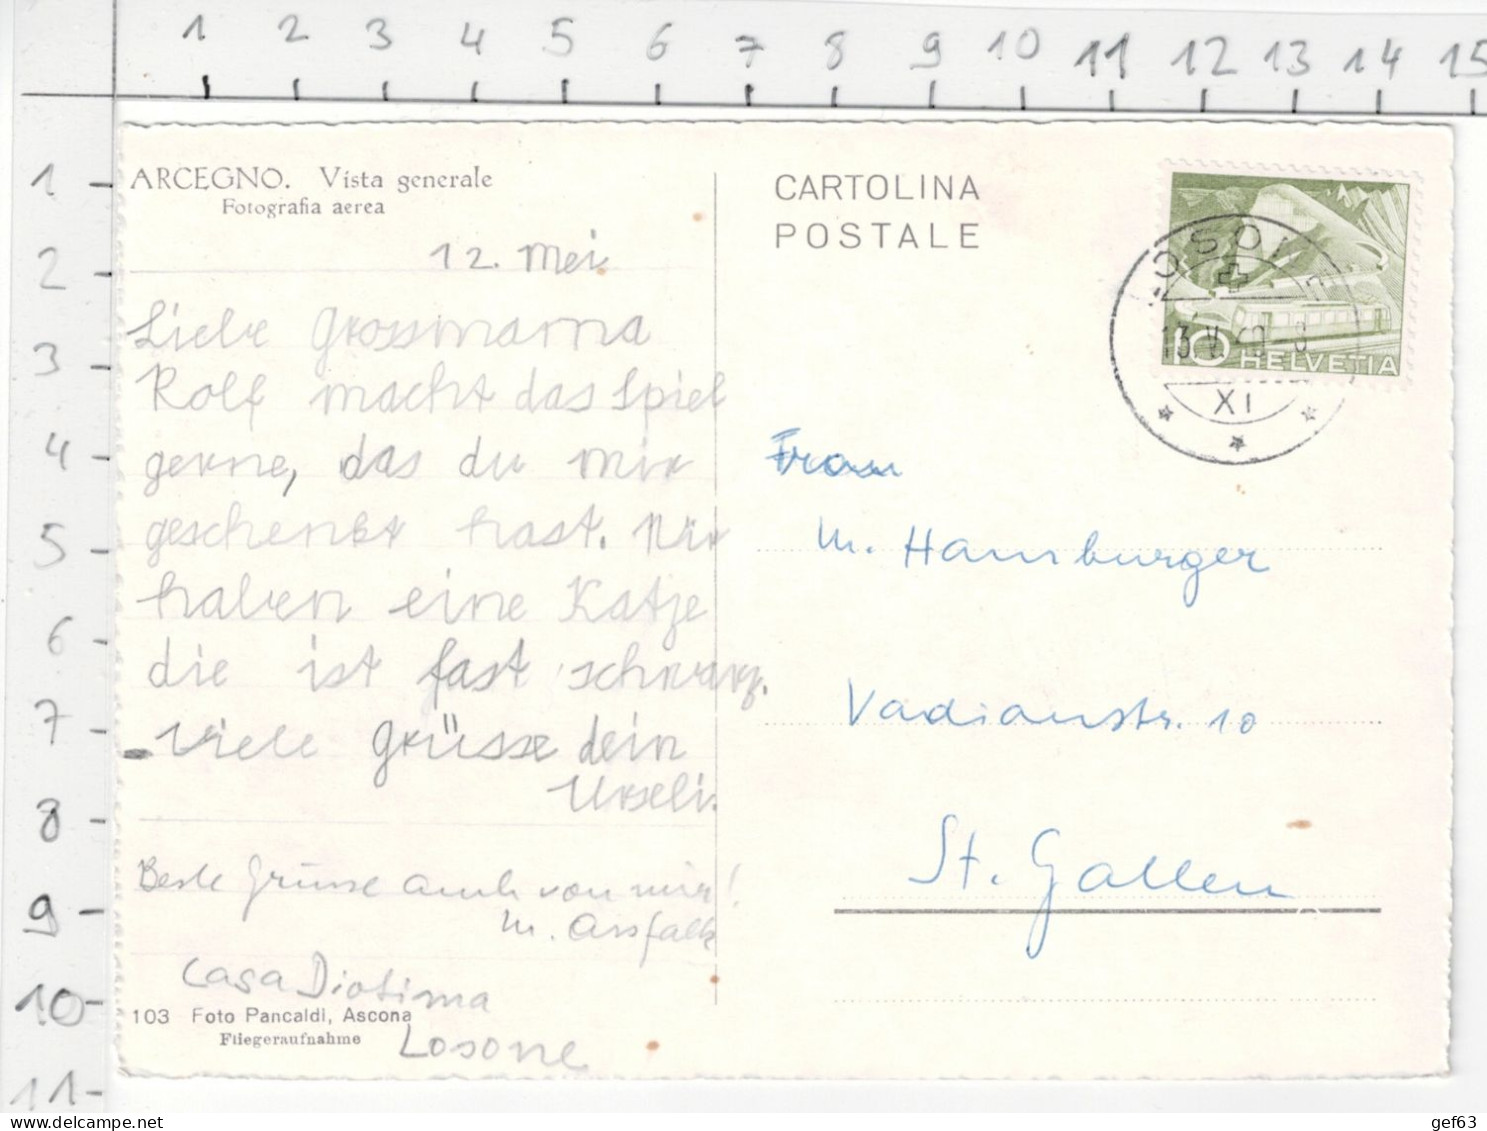 1 2 3 4 5 6 7 8 9 10 11 12 13 14 15
1
2
3
4
5
6
7
8
9
10
11
ARCEGNO. Vista generale
Fotografia aerea
12. Mei
Liebe Grossmama
Rolf macht das Spiel
gerne, das du mir
geschenkt hast. Wir
haben eine Katze
die ist fast schwarz.
Viele Grüsse dein
Urseli.
Beste Grüsse auch von mir!
M. Assfalk
Casa Diotima
Losone
103 Foto Pancaldi, Ascona
Fliegeraufnahme
CARTOLINA
POSTALE
10 HELVETIA
13. V. 8
XI
Frau
M. Hamburger
Vadianstr. 10
St. Gallen
gef63